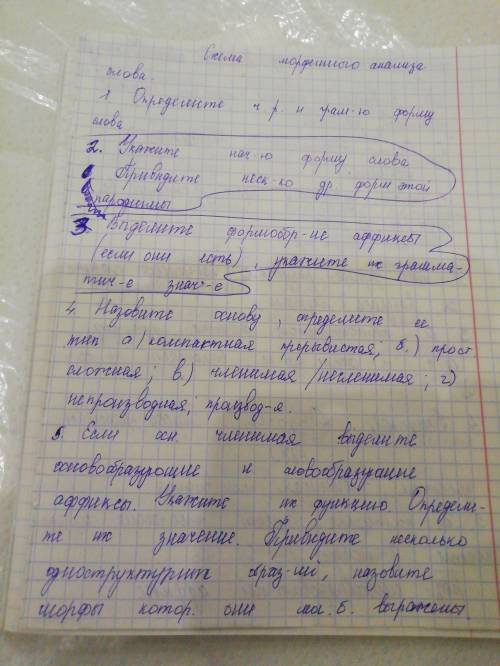 Схема морфемного анализа
слова.
1. Определите ч. р. и грам-ю форму
слова
2. Укажите нач-ю форму слова
Приведите неск-ко др. форм этой
парадигмы
3. Выделите формообр-ие аффиксы
(если они есть), укажите их грамма-
тич-е знач-е
4. Назовите основу, определите ее
тип а) компактная прерывистая; б.) прост
сложная; в.) членимая / нечленимая; г)
непроизводная; производ-я.
5. Если осн. членимая выделите
основообразующие и словообразующие
аффиксы. Укажите их функцию. Определи-
те их значение. Приведите несколько
одноструктурных образ-ий, назовите
морфы котор. они мог. б. выражены.